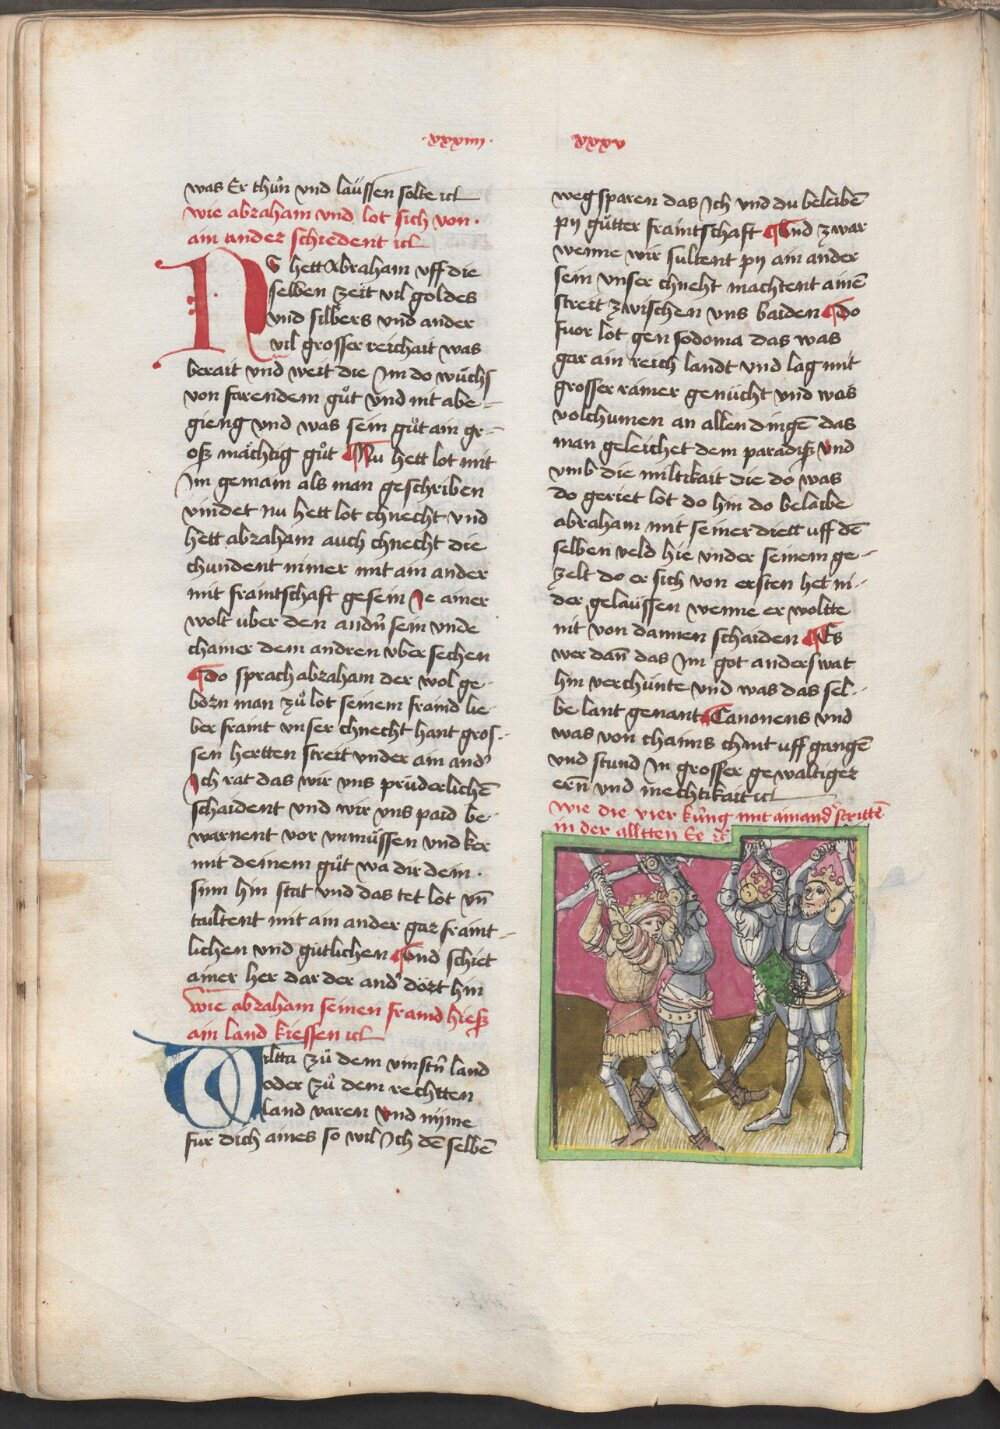 ·xxxiiii·
was Er thůn vnd laüssen solte ꝛcͣ
wie abraham vnd lot sich von·
ain ander schiedent ꝛcͣ
NU hett Abraham vff die
selben zeit vil goldes
vnd silbers vnd ander
vil grosser reichait was
berait vnd weit die Jm do wůchs
von farendem gůt vnd nit abe-
gieng vnd was sein gůt ain gr-
oß mächtig gůt Nu hett lot mit
Jm gemain als man geschriben
vindet nu hett lot chnecht vnd
hett abraham auch chnecht die
chundent nimer mit ain ander
mit fraintschaft gesein Je ainer
wolt uber den andn̄ sein vnde
chainer dem andren vber sechen
do sprach abraham der wol ge-
born man zů lot seinem fraind lie-
ber fraint vnser chnecht hant gros-
sen hertten streit vnder ain and'
Jch rat das wir vns prüderlichē
schaident vnd wir vns paid be-
warnent vor vnmüssen vnd ker
mit deinem gůt wa dir dein·
sinn hin stat vnd das tet lot vn̄
tailtent mit ain ander gar fraint-
lichen vnd gůtlichen Vnd schiet
ainer her dar der and' dört hin
wie abraham seinen fraind hieß
ain land kiessen ꝛcͣ
Wiltu zů dem vinstn̄ land
oder zů dem rechtten
land varen vnd nijme
für dich aines so wil Jch dē selbē
xxxv
weg sparen das Jch vnd du beleibē
pij gůtter fraintschaft Vnd zwar
wenne wir sultent pij ain ander
sein vnser chneht machtent ainē
streit zwischen vns baiden do
fuor lot gen sodoma das was
gar ain reich landt vnd lag mit
grosser rainer genücht vnd was
volchumen an allen dingē das
man geleichet dem paradiß vnd
vmb die miltikait die do was
do geriet lot do hin do belaibe
abraham mit seiner diett uff dē
selben veld hie vnder seinem ge-
zelt do er sich von ersten het ni-
der gelaüssen wenne er woltte
nit von dannen schaiden Es
wer dan̄ das Jm got anderswat
hin verchünte vnd was das sel-
be lant genant Canonens vnd
was von chams chint uff gangē
vnd stund Jn grosser gewaltiger
ern̄ vnd mechtikait ꝛcͣ
wie die vier küng mit ainand' strittē
in der alltten Ee ꝛcͣ